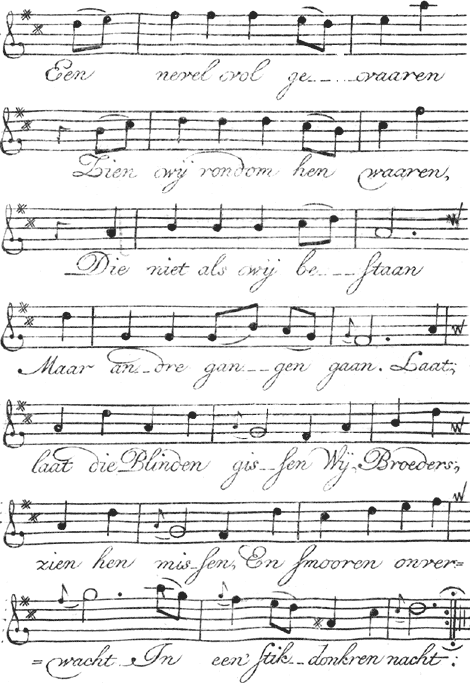 Een nevel vol ge_._._.vaaren
Zien wij rondom hen waaren,
Die niet als wij be_._._staan
Maar an_.dre gan_._.gen gaan. Laat,
laat die Blinden gis_.sen Wij, Broeders,
zien hen mis_sen, En smooren onver=
=wacht In een' stik_donkren nacht: